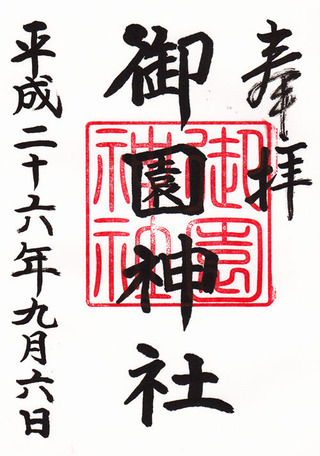 奉拝
御園神社
御園
神社
平成二十六年九月六日